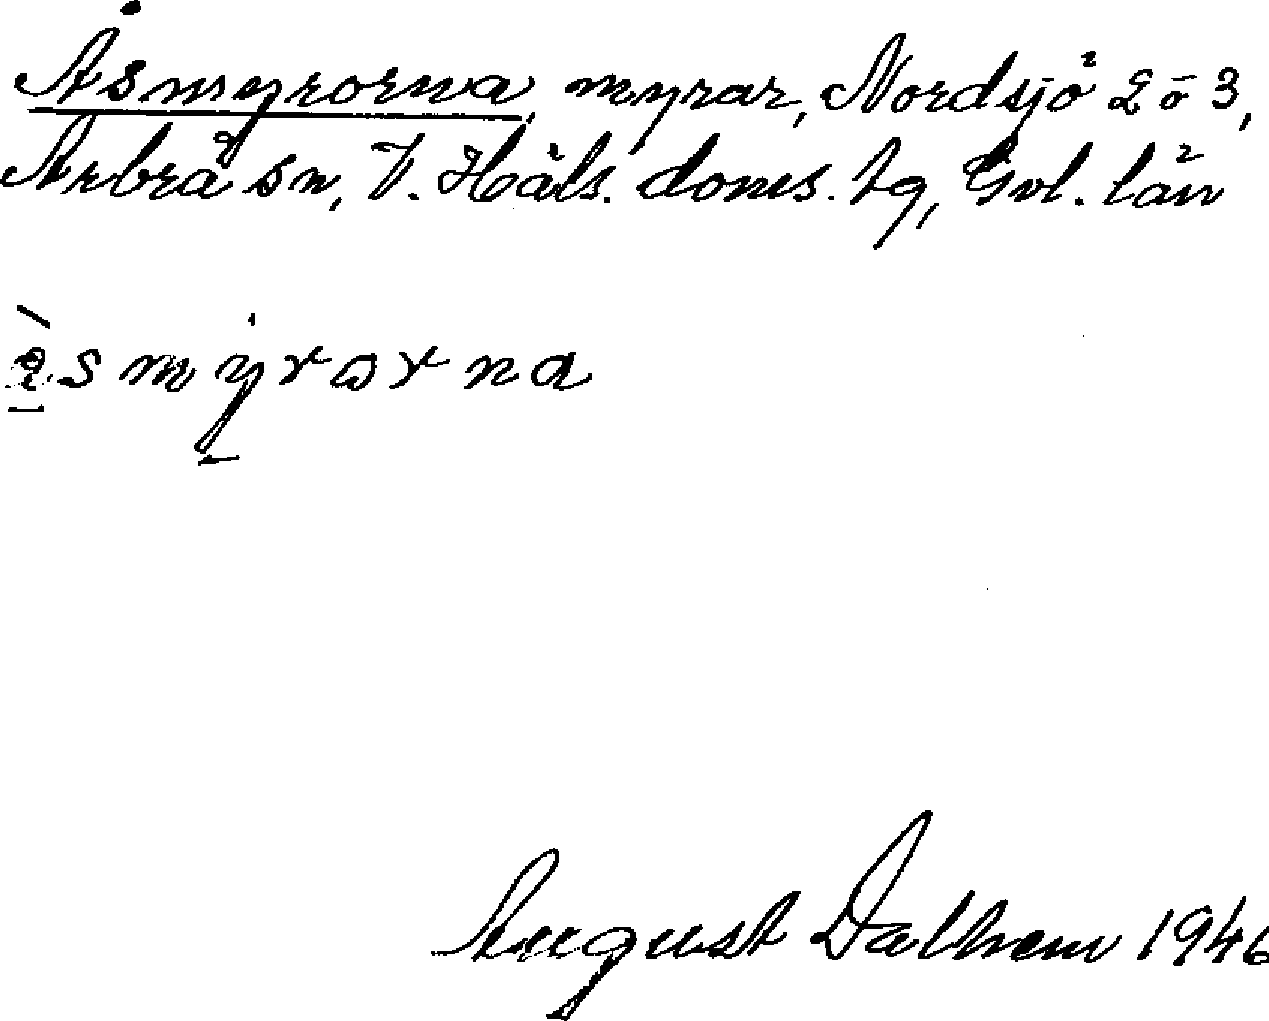 Åsmyrorna, myrar, Nordsjö 2 o 3,
Arbrå sn, V. Häls. doms. tg, Gvl. län
åsmyrorna
August Dalhem 1946